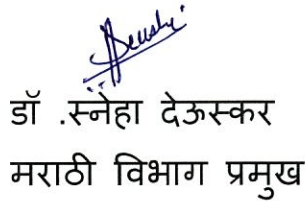 डॉ .स्नेहा देऊस्कर
मराठी विभाग प्रमुख